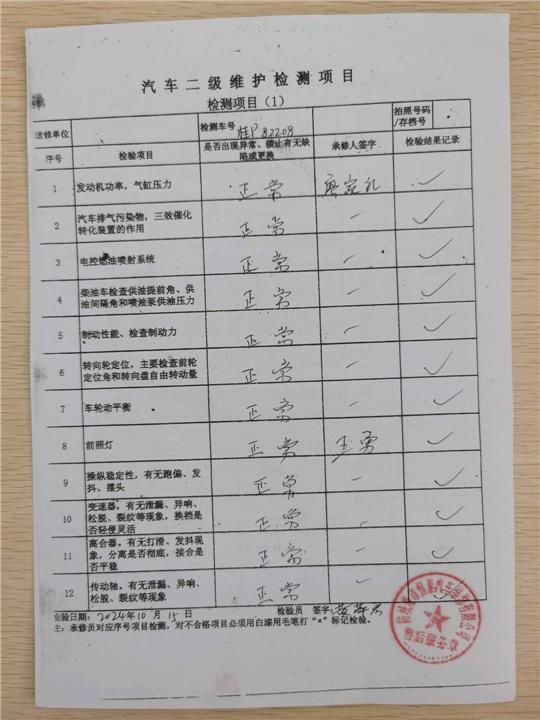 汽车二级维护检测项目
检测项目（1）
送修单位 检测车号 桂P82208 拍照号码/存档号
序号 检验项目 是否出现异常、锁止有无缺陷或更换 承修人签字 检验结果记录
1 发动机功率，气缸压力 正常 ✓
2 汽车排气污染物，三效催化转化装置的作用 正常 — ✓
3 电控燃油喷射系统 正常 — ✓
4 柴油车检查供油提前角、供油间隔角和喷油泵供油压力 正常 — ✓
5 制动性能、检查制动力 正常 — ✓
6 转向轮定位，主要检查前轮定位角和转向盘自由转动量 正常 — ✓
7 车轮动平衡 正常 — ✓
8 前照灯 正常 王勇 ✓
9 操纵稳定性，有无跑偏、发抖、摆头 正常 — ✓
10 变速器，有无泄漏、异响、松脱、裂纹等现象，换档是否轻便灵活 正常 — ✓
11 离合器。有无打滑、发抖现象，分离是否彻底，接合是否平稳 正常 — ✓
12 传动轴。有无泄漏、异响、松脱、裂纹等现象 正常 — ✓
验日期：2024年10月15日 检验员 签字
主：承修员对应序号项目检测，对不合格项目必须用白漆用毛笔打“×”标记检验。